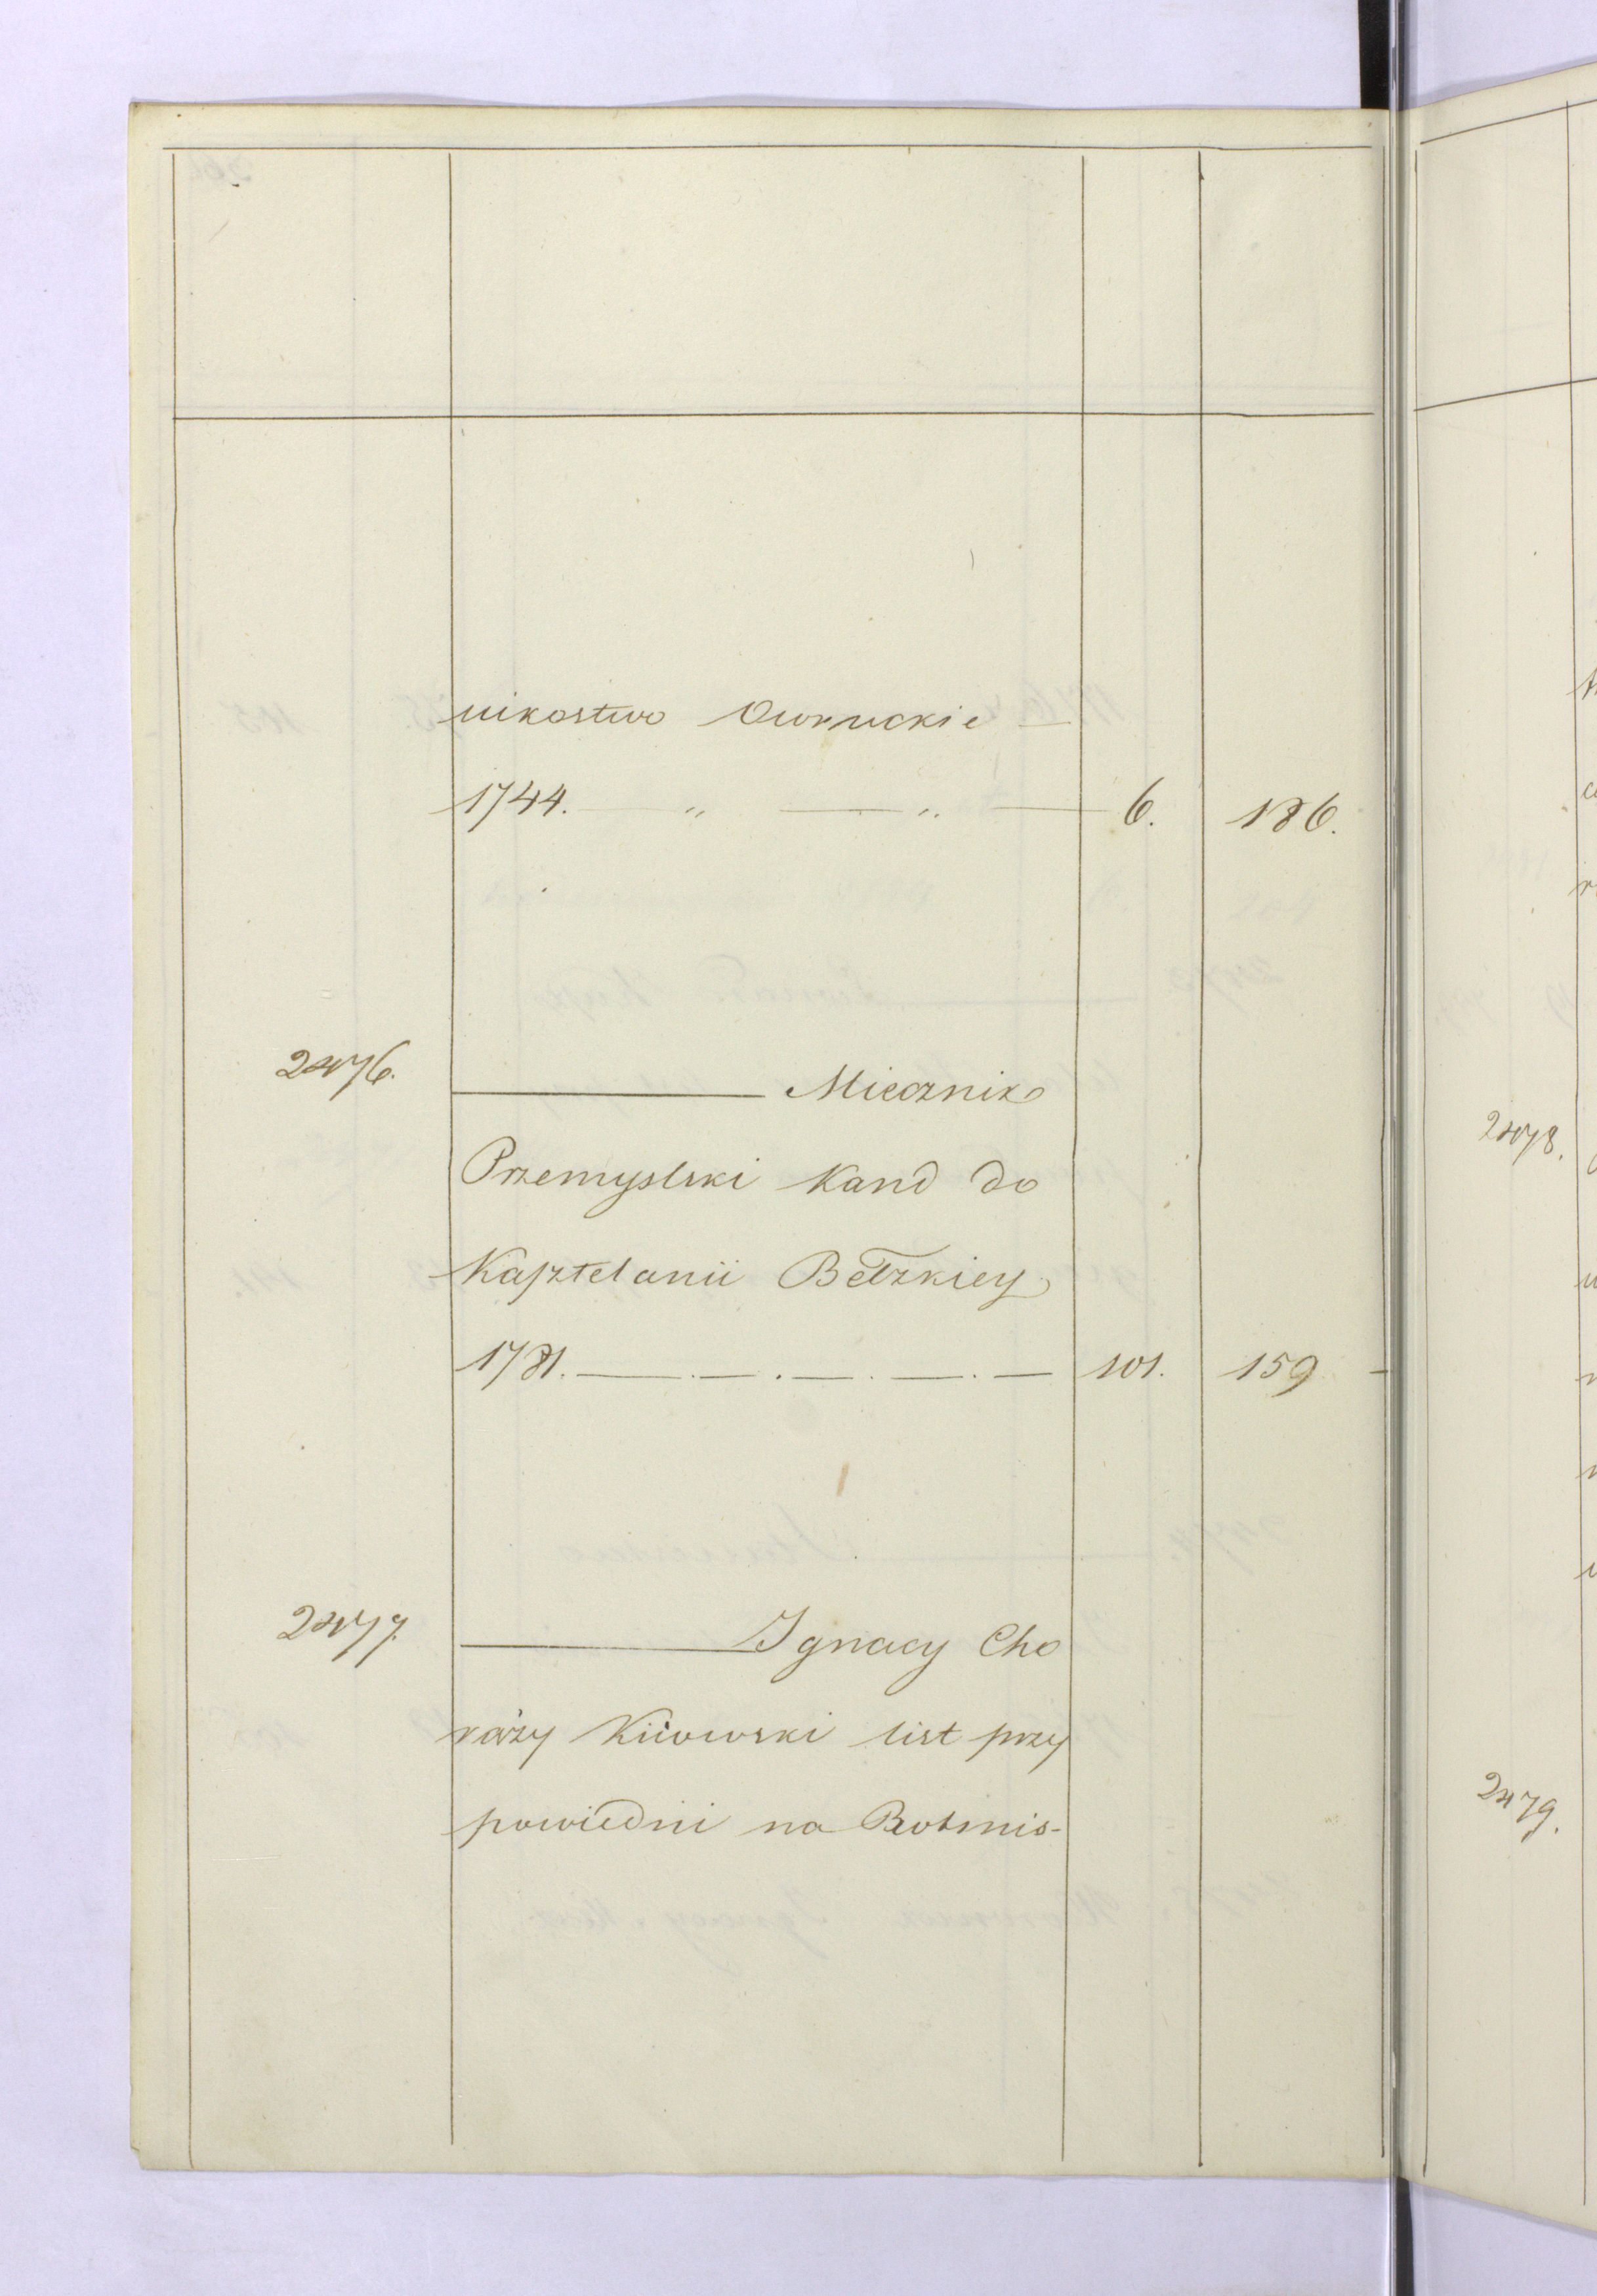 nikostwo Owruckie —
1744. — " — " — 6. 186.
2476. — Miecznik
Przemyslski Kand do
Kasztelanii Bełzkiey
1781. — . — . — . — . — 101. 159
2477. — Ignacy Cho
rąży Kiiowski list przy
powiedni na Rotmis-
2478.
2479.